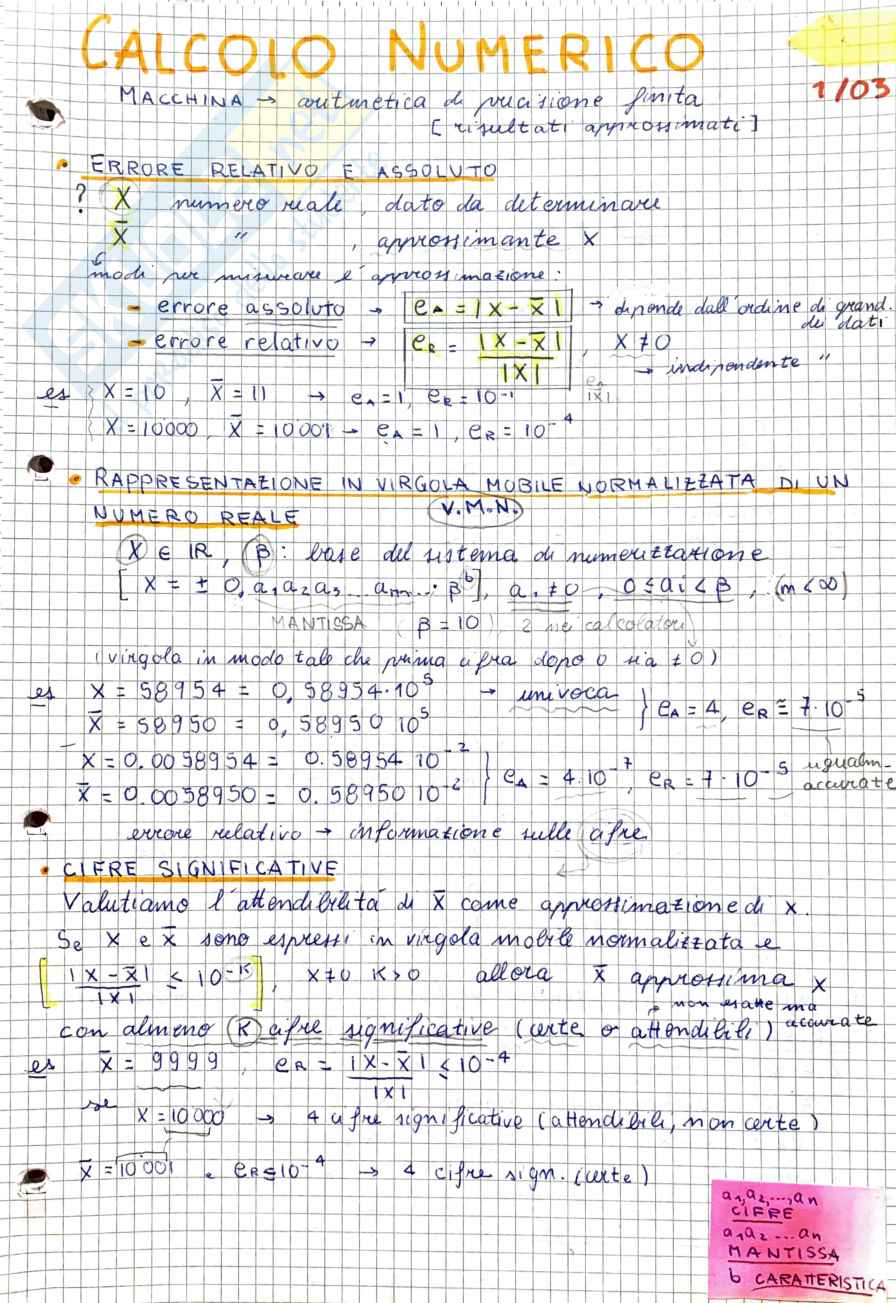 CALCOLO NUMERICO
1/03
MACCHINA → aritmetica di precisione finita
[risultati approssimati]
• ERRORE RELATIVO E ASSOLUTO
? X numero reale, dato da determinare
X̄ " , approssimante X
modi per misurare l'approssimazione:
- errore assoluto → eA = |X - X̄| → dipende dall'ordine di grand. dei dati
- errore relativo → eR = |X - X̄| / |X| , X ≠ 0
→ indipendente "
eA / |X|
es { X = 10 , X̄ = 11 → eA = 1, eR = 10⁻¹
X = 10000, X̄ = 10001 → eA = 1, eR = 10⁻⁴
• RAPPRESENTAZIONE IN VIRGOLA MOBILE NORMALIZZATA DI UN
NUMERO REALE (V.M.N.)
X ∈ IR, β : base del sistema di numerizzazione
[X = ± 0, a₁a₂a₃... aₘ... · βᵇ], a₁ ≠ 0, 0 ≤ ai < β, (m < ∞)
MANTISSA (β = 10), 2 nei calcolatori
(virgola in modo tale che prima cifra dopo 0 sia ≠ 0)
es X = 58954 = 0,58954·10⁵ → univoca
X̄ = 58950 = 0,58950 10⁵ } eA = 4, eR ≅ 7·10⁻⁵
X = 0.0058954 = 0.58954 10⁻²
X̄ = 0.0058950 = 0.58950 10⁻² } eA = 4·10⁻⁷, eR = 7·10⁻⁵ ugualm- accurate
errore relativo → informazione sulle cifre
• CIFRE SIGNIFICATIVE
Valutiamo l'attendibilità di X̄ come approssimazione di x.
Se X e X̄ sono espressi in virgola mobile normalizzata e
[|X - X̄| / |X| ≤ 10⁻ᴷ], X ≠ 0 K > 0 allora X̄ approssima X
non esatte ma accurate
con almeno K cifre significative (certe o attendibili)
es X̄ = 9999, eR = |X - X̄| / |X| ≤ 10⁻⁴
se X = 10000 → 4 cifre significative (attendibili, non certe)
X̄ = 10001, eR ≤ 10⁻⁴ → 4 cifre sign. (certe)
a₁,a₂,...,an
CIFRE
a₁a₂...an
MANTISSA
b CARATTERISTICA